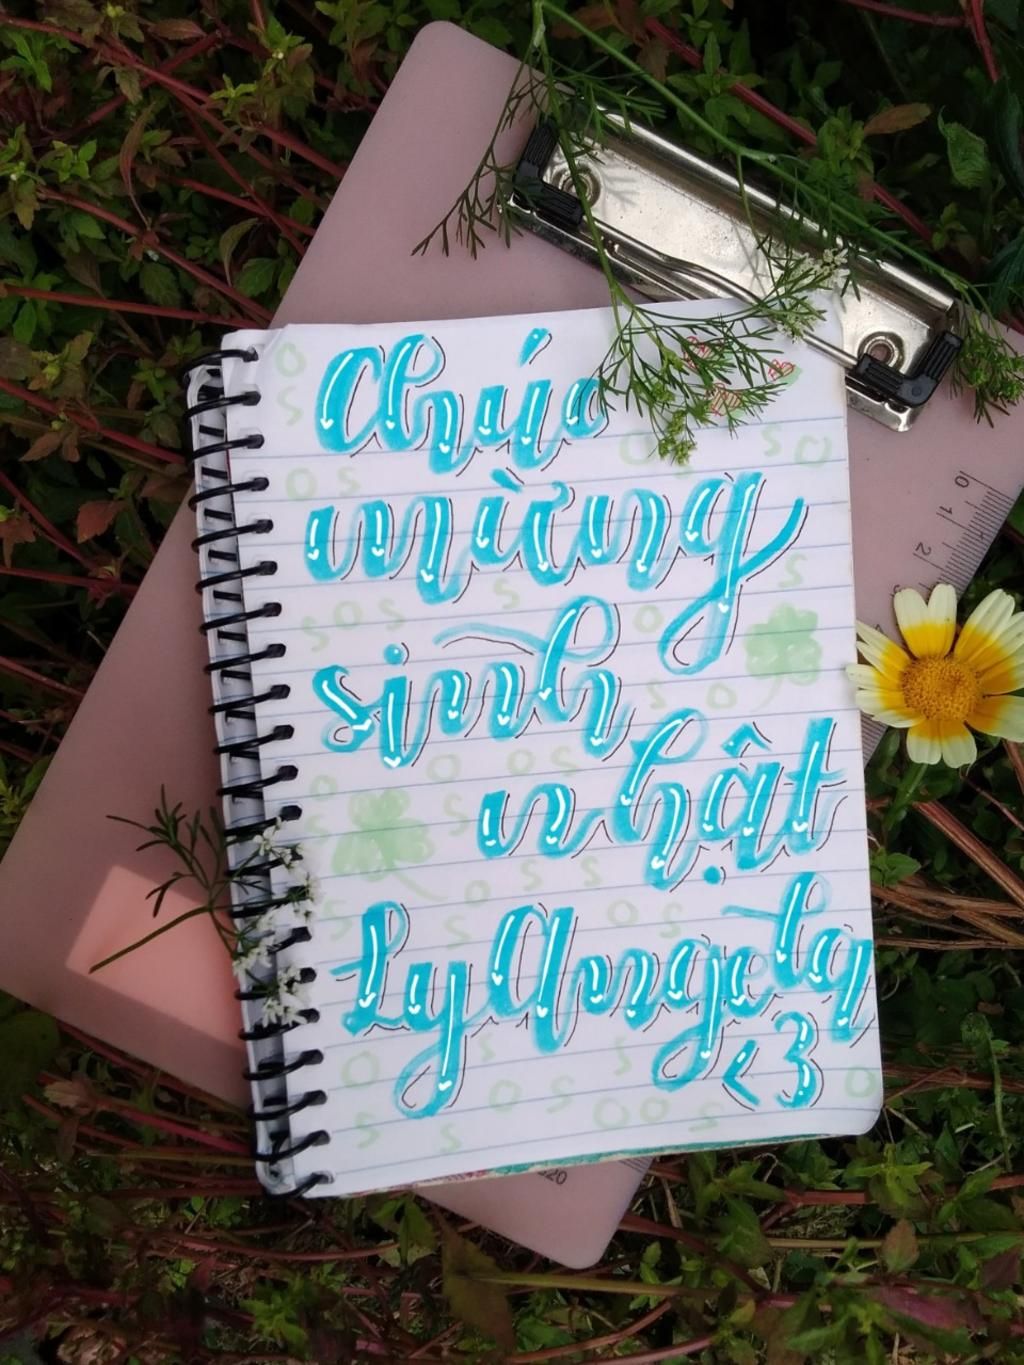 Chúc
mừng
sinh
nhật
Ly Angela
<3
0
1
2
20